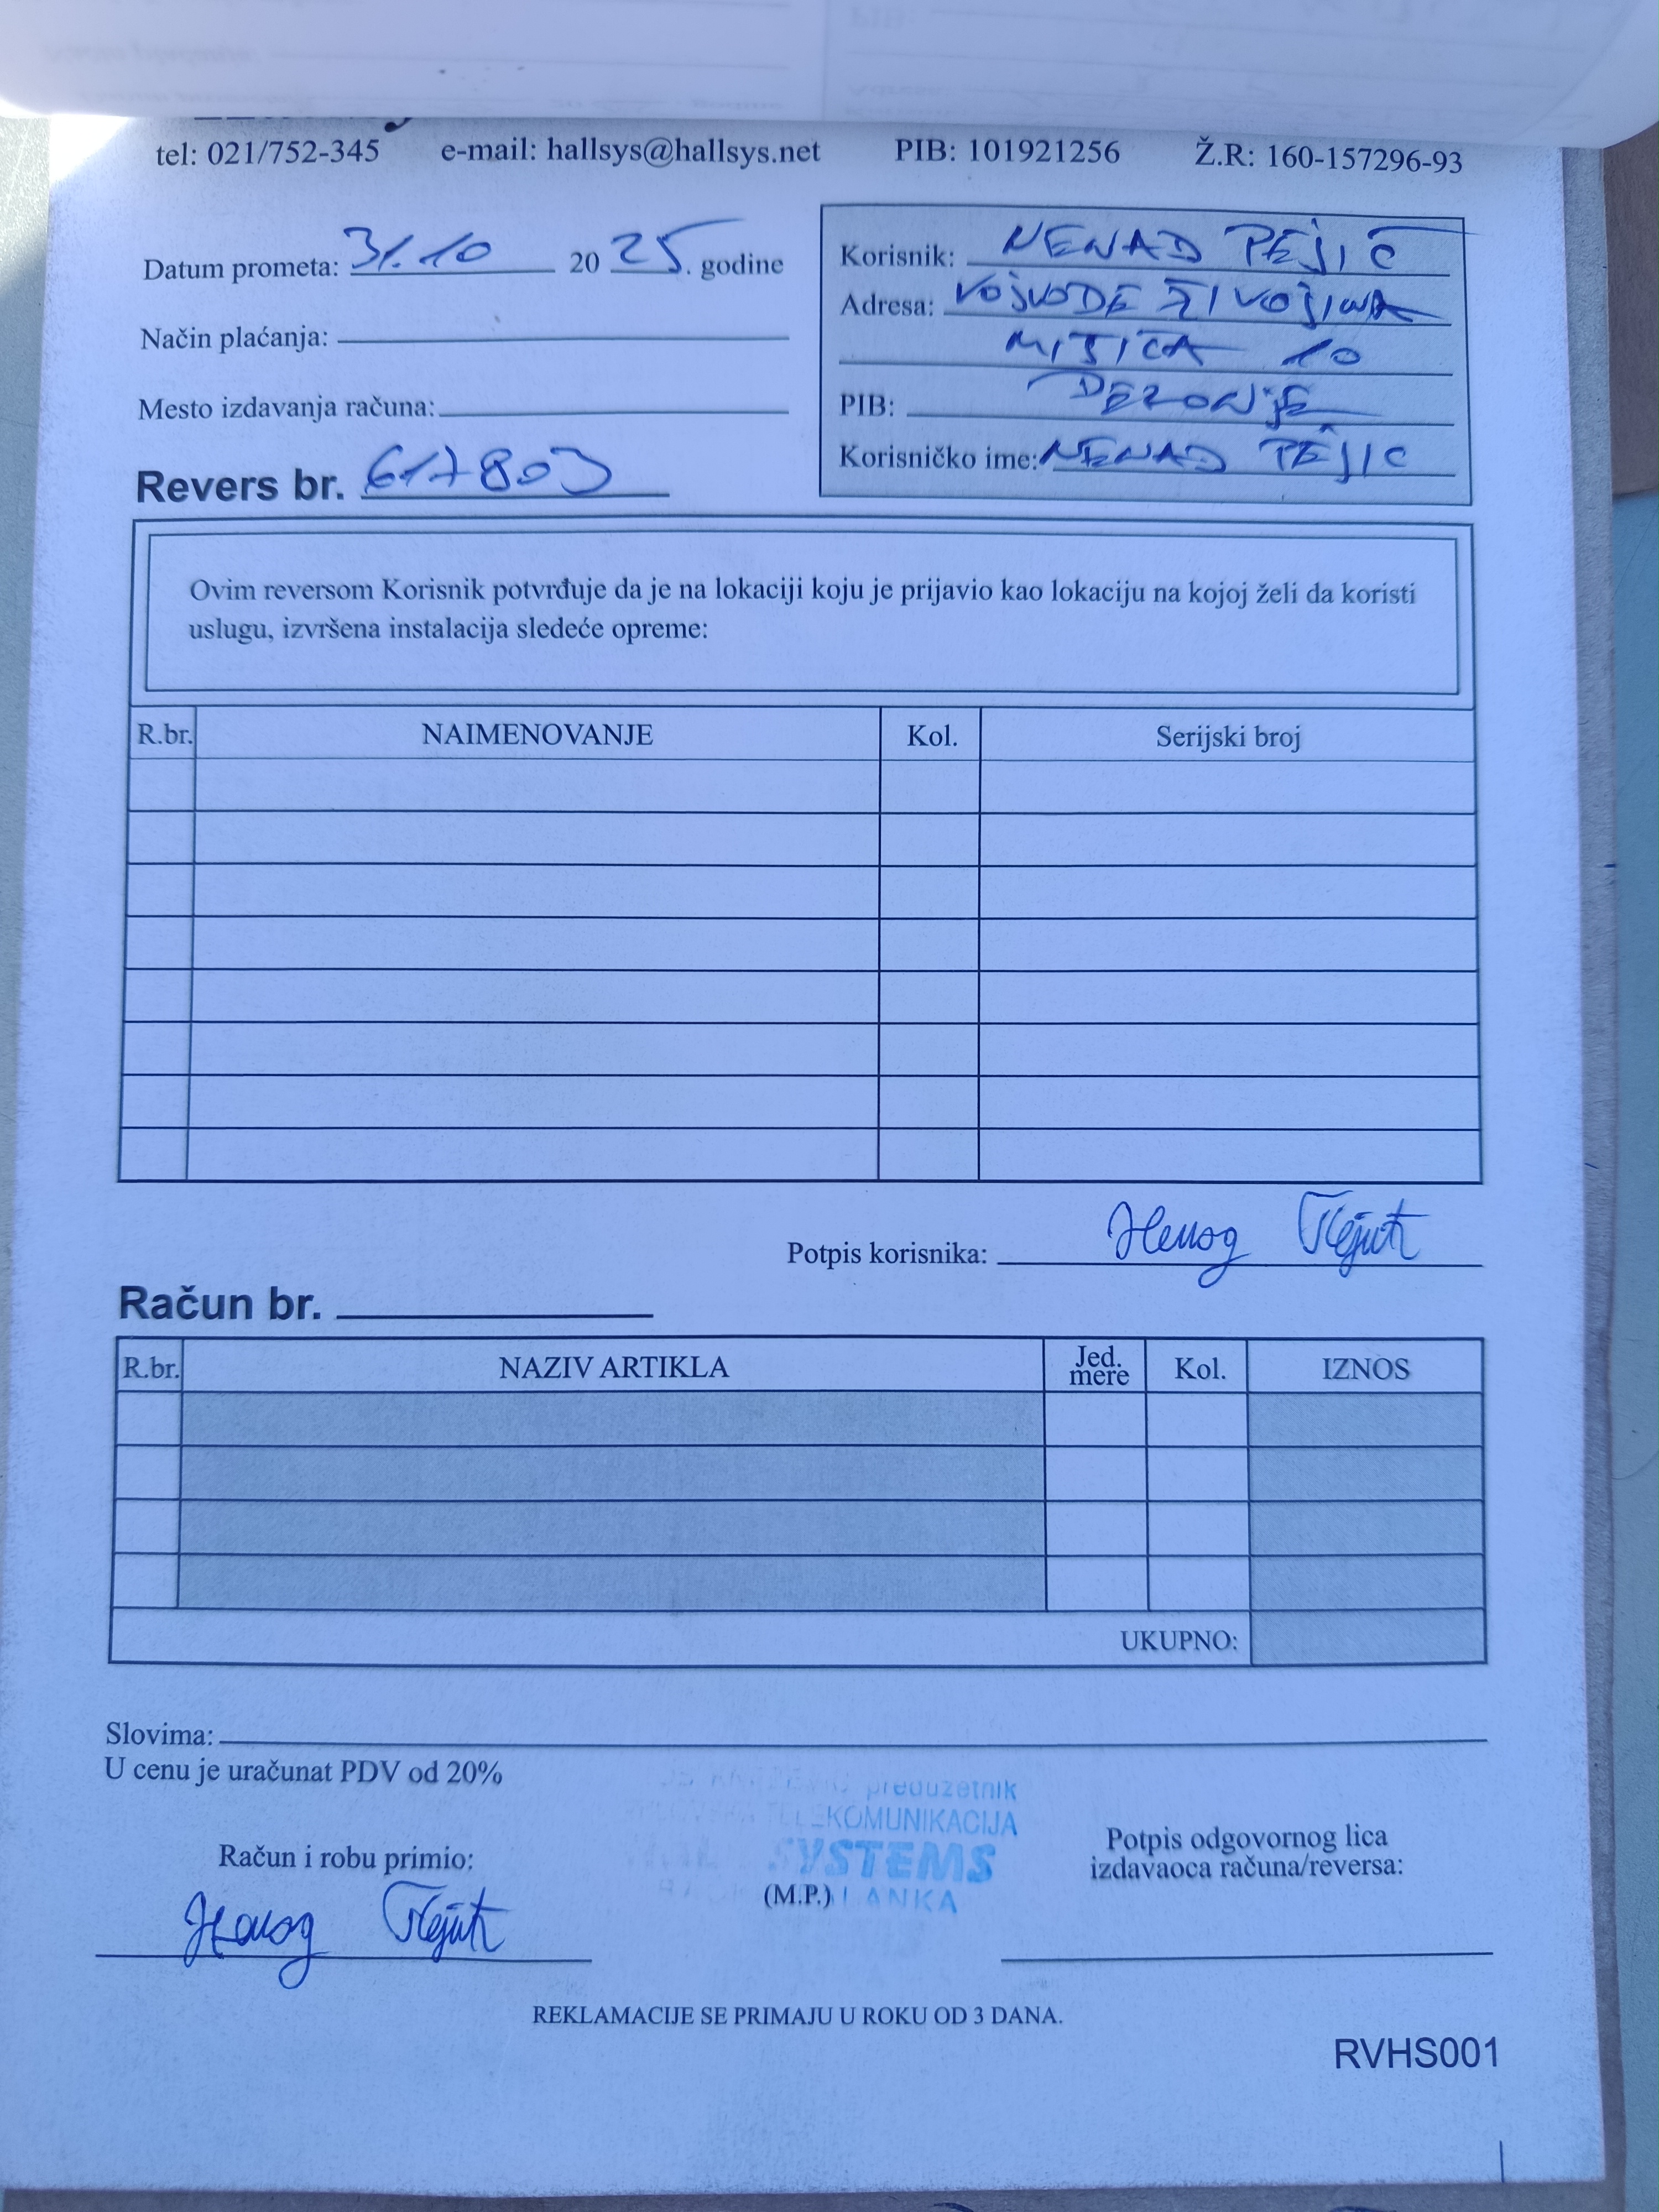 tel: 021/752-345 e-mail: hallsys@hallsys.net PIB: 101921256 Ž.R: 160-157296-93
Datum prometa: 31.10 2025. godine
Način plaćanja:
Mesto izdavanja računa:
Revers br. 617803
Korisnik: NENAD PEJIĆ
Adresa: VOJVODE ŽIVOJINA
MIŠIĆA 10
PIB: DERONJE
Korisničko ime: NENAD PEJIC
Ovim reversom Korisnik potvrđuje da je na lokaciji koju je prijavio kao lokaciju na kojoj želi da koristi
uslugu, izvršena instalacija sledeće opreme:
R.br. NAIMENOVANJE Kol. Serijski broj
Potpis korisnika:
Račun br.
R.br. NAZIV ARTIKLA Jed. mere Kol. IZNOS
UKUPNO:
Slovima:
U cenu je uračunat PDV od 20%
preduzetnik
TELEKOMUNIKACIJA
SYSTEMS
LANKA
Račun i robu primio:
(M.P.)
Potpis odgovornog lica
izdavaoca računa/reversa:
REKLAMACIJE SE PRIMAJU U ROKU OD 3 DANA.
RVHS001